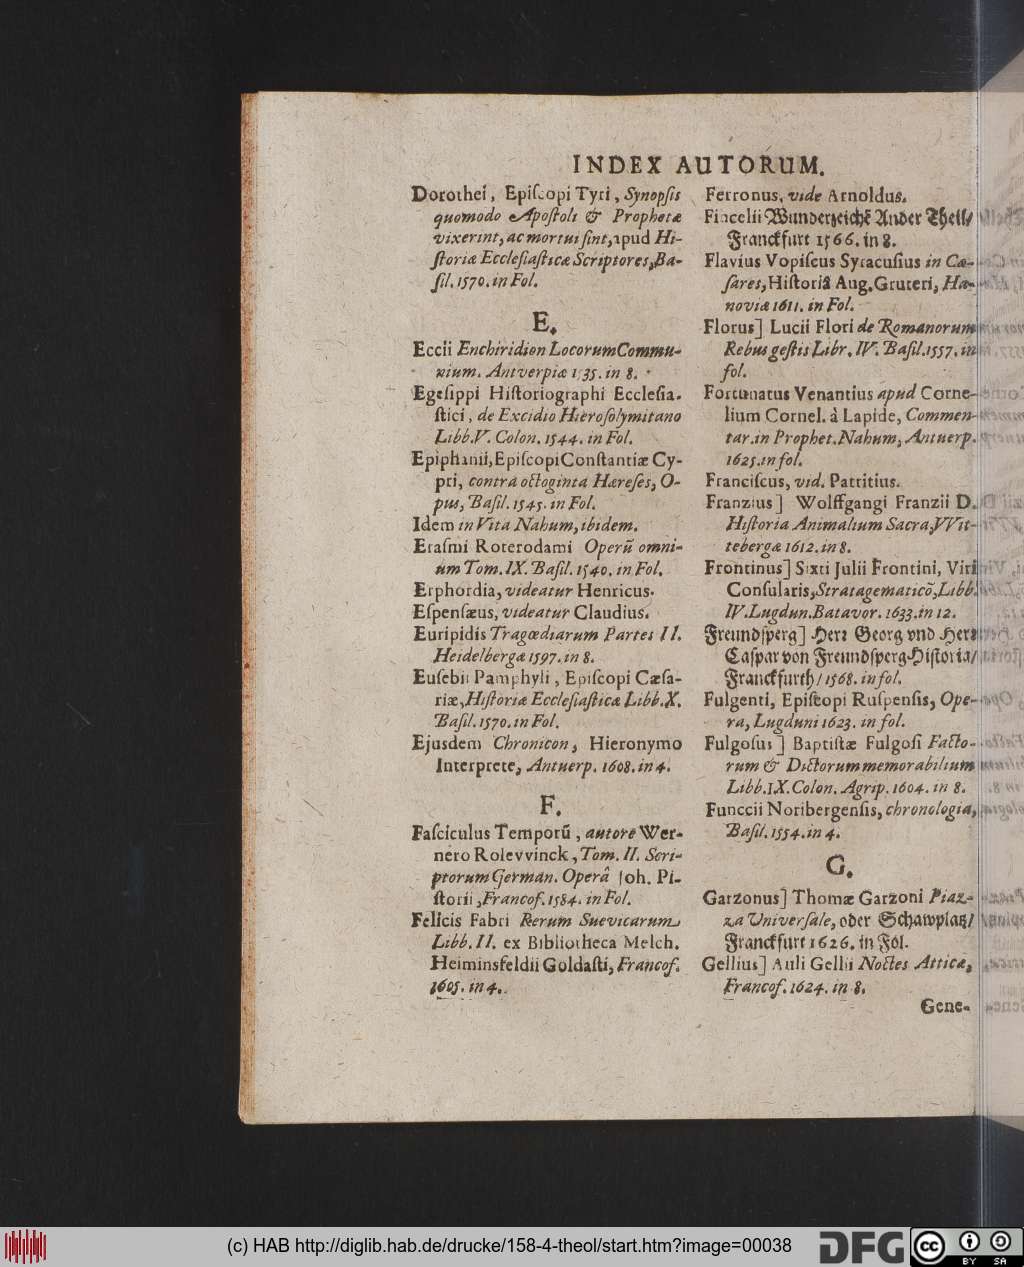 INDEX AUTORUM.
Dorothei, Epiſcopi Tyri, Synopſis
quomodo Apoſtoli & Prophetæ
vixerint, ac mortui ſint, apud Hi-
ſtoriæ Eccleſiaſticæ Scriptores, Ba-
ſil. 1570. in Fol.
E.
Eccii Enchiridion Locorum Commu-
nium. Antverpiæ 1535. in 8.
Egeſippi Hiſtoriographi Eccleſia-
ſtici, de Excidio Hieroſolymitano
Libb. V. Colon. 1544. in Fol.
Epiphanii, Epiſcopi Conſtantiæ Cy-
pri, contra octoginta Hæreſes, O-
pus, Baſil. 1545. in Fol.
Idem in Vita Nahum, ibidem.
Eraſmi Roterodami Operū omni-
um Tom. IX. Baſil. 1540. in Fol.
Erphordia, videatur Henricus.
Eſpenſæus, videatur Claudius.
Euripidis Tragœdiarum Partes II.
Heidelbergæ 1597. in 8.
Euſebii Pamphyli, Epiſcopi Cæſa-
riæ, Hiſtoriæ Eccleſiaſticæ Libb. X.
Baſil. 1570. in Fol.
Ejusdem Chronicon, Hieronymo
Interprete, Antuerp. 1608. in 4.
F.
Faſciculus Temporū, autore Wer-
nero Rolevvinck, Tom. II. Scri-
ptorum German. Operâ Joh. Pi-
ſtorii, Francof. 1584. in Fol.
Felicis Fabri Rerum Suevicarum
Libb. II. ex Bibliotheca Melch.
Heiminsfeldii Goldaſti, Francof.
1605. in 4.
Ferronus, vide Arnoldus.
Fincelii Wunderzeichē Ander Theil/
Franckfurt 1566. in 8.
Flavius Vopiſcus Syracuſius in Cæ-
ſares, Hiſtoriâ Aug. Gruteri, Ha-
noviæ 1611. in Fol.
Florus] Lucii Flori de Romanorum
Rebus geſtis Libr. IV. Baſil. 1557. in
fol.
Fortunatus Venantius apud Corne-
lium Cornel. à Lapide, Commen-
tar. in Prophet. Nahum, Antuerp.
1625. in fol.
Franciſcus, vid. Patritius.
Franzius] Wolffgangi Franzii D.
Hiſtoria Animalium Sacra, VVit-
tebergæ 1612. in 8.
Frontinus] Sixti Julii Frontini, Viri
Conſularis, Stratagematicō, Libb.
IV. Lugdun. Batavor. 1633. in 12.
Freundſperg] Herr Georg vnd Herr
Caſpar von Freundſperg Hiſtoria/
Franckfurth/ 1568. in fol.
Fulgenti, Epiſcopi Ruſpenſis, Ope-
ra, Lugduni 1623. in fol.
Fulgoſus] Baptiſtæ Fulgoſi Facto-
rum & Dictorum memorabilium
Libb. IX. Colon. Agrip. 1604. in 8.
Funccii Noribergenſis, chronologia,
Baſil. 1554. in 4.
G.
Garzonus] Thomæ Garzoni Piaz-
za Univerſale, oder Schawplatz/
Franckfurt 1626. in Fol.
Gellius] Auli Gellii Noctes Atticæ,
Francof. 1624. in 8.
Gene-
(c) HAB http://diglib.hab.de/drucke/158-4-theol/start.htm?image=00038
DFG
cc BY SA